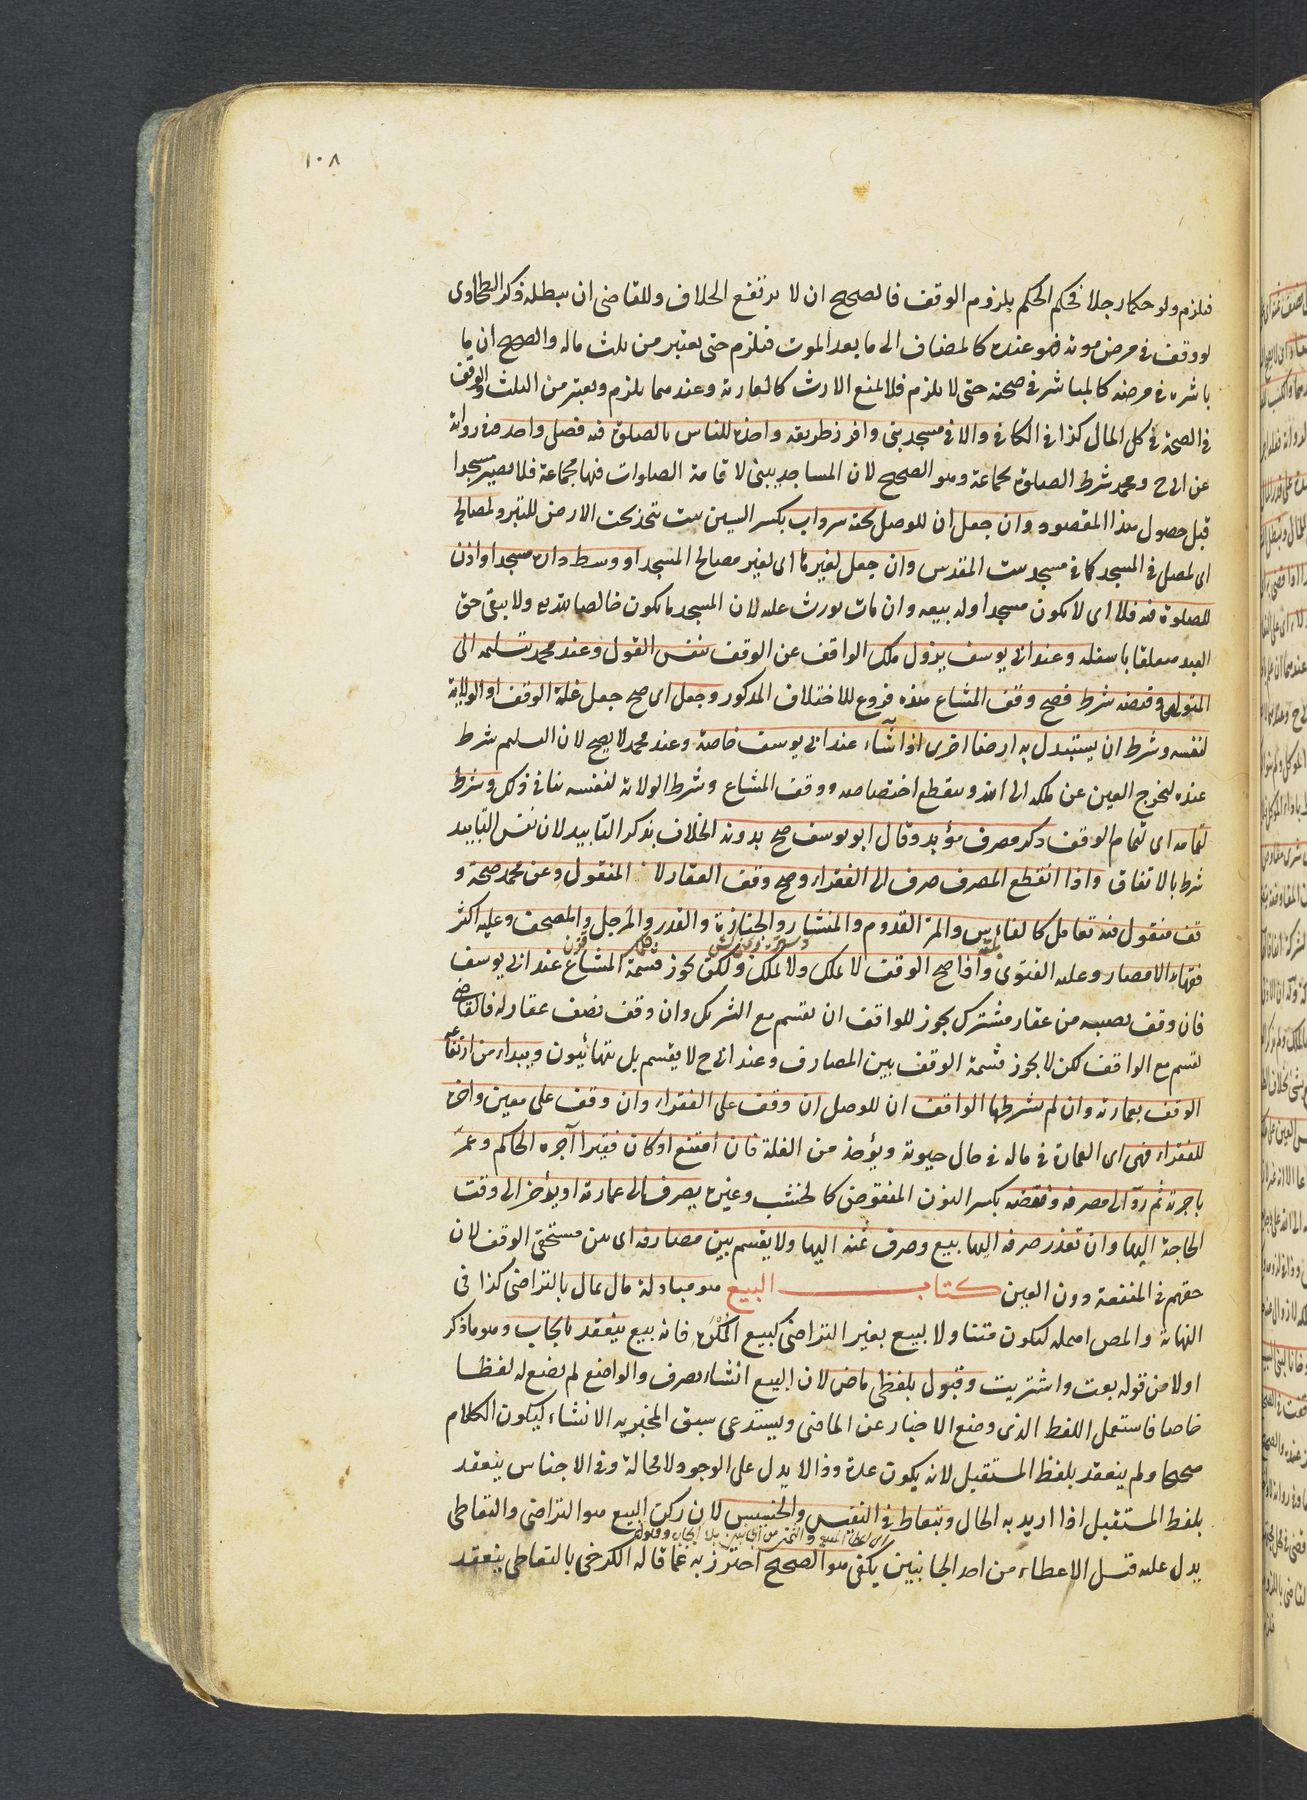 ١٠٨
فيلزم ولو حكما رجلا فحكم الحكم بلزوم الوقف فالصحيح ان لا يرتفع الخلاف وللقاضى ان يبطله ذكره الطحاوى
لو وقف فى مرض موته فهو عنده كالمضاف الى ما بعد الموت فيلزم حتى يعتبر من ثلث ماله والصحيح ان ما
باشره فى مرضه كالمباشر فى صحته حتى لا يلزم فلا يمنع الارث كالعارية وعندهما يلزم ويعتبر من الثلث والوقف
فى الصحة فى كل المال كذا فى الكافى والا فى مسجد بنى وافرز طريقه واذن للناس بالصلوة فيه فصلى واحد فى رواية
عن ابى ح ومحمد شرط الصلوة بجماعة وهو الصحيح لان المساجد يبنى لاقامة الصلوات فيها بجماعة فلا يصير مسجدا
قبل حصول هذا المقصود وان جعل ان للوصل تحته سرداب بكسر السين بيت يتخذ تحت الارض للتبرد لمصالحه
اى لمصل فى المسجد كما فى مسجد بيت المقدس وان جعل لغيرها اى لغير مصالح المسجد او وسط داره مسجدا واذن
للصلوة فيه فلا اى لا يكون مسجدا وله بيعه وان مات يورث عنه لان المسجد ما يكون خالصا لله ولا يبقى حق
العبد متعلقا باسفله وعند ابى يوسف يزول ملك الواقف عن الوقف بنفس القول وعند محمد تسليمه الى
المتولى وقبضه شرط فصح وقف المشاع هذه فروع للاختلاف المذكور وجعل اى صح جعل غلة الوقف او الولاية
لنفسه وشرط ان يستبدل به ارضا اخرى اذا شاء عند ابى يوسف خاصة وعند محمد لا يصح لان التسليم شرط
عنده ليخرج العين عن ملكه الى الله وينقطع اختصاصه ووقف المشاع وشرط الولاية لنفسه ينافى ذلك وشرط
لتمامه اى لتمام الوقف ذكر مصرف مؤبد وقال ابو يوسف صح بدونه الخلاف بذكر التأبيد لان نفس التأبيد
شرط بالاتفاق واذا انقطع المصرف صرف الى الفقراء وصح وقف العقار لا المنقول وعن محمد صحته و
قف منقول فيه تعامل كالفأس والمر القدوم والمنشار والجنازة والقدر والمرجل والمصحف وعليه اكثر
فقهاء الامصار وعليه الفتوى واذا صح الوقف لا يملك ولا يملك ولكن يجوز قسمة المشاع عند ابى يوسف
فان وقف نصيبه من عقار مشترك يجوز للواقف ان يقسم مع الشريك وان وقف نصف عقار له فالقاضى
يقسم مع الواقف لكن لا يجوز قسمة الوقف بين المصارف وعند ابى ح لا يقسم بل يتهائيون ويبداء من ارتفاع
الوقف بعمارته وان لم يشرطها الواقف ان للوصل ان وقف على الفقراء وان وقف على معين واخره
للفقراء فهى اى العمارة فى ماله فى حال حيوته ويؤخذ من الغلة فان امتنع او كان فقيرا آجره الحاكم وعمر
باجرته ثم رد الى مصرفه ونقضه بكسر النون المنقوض كالخشب وغيره يصرف الى عمارته او يؤخر الى وقت
الحاجة اليها وان تعذر صرفه اليها بيع وصرف ثمنه اليها ولا يقسم بين مصارفه اى بين مستحقى الوقف لان
حقهم فى المنفعة دون العين كتاب البيع هو مبادلة مال بمال بالتراضى كذا فى
النهاية والمص اهمله ليكون متناولا لبيع بغير التراضى كبيع المكره فانه بيع ينعقد بايجاب وهو ما ذكر
اولا من قوله بعت واشتريت وقبول بلفظى ماض لان البيع انشاء تصرف والواضع لم يضع له لفظا
خاصا فاستعمل اللفظ الذى وضع الاخبار عن الماضى ويستدعى سبق المخبر به الانشاء ليكون الكلام
صحيحا ولم ينعقد بلفظ المستقبل لانه يكون عدة وذا لا يدل على الوجود لا محالة وفى الاجناس ينعقد
بلفظ المستقبل اذا اريد به الحال وبتعاط فى النفيس والخسيس لان ركن البيع هو التراضى والتعاطى
يدل عليه قيل الاعطاء من احد الجانبين يكفى هو الصحيح احترز به عما قاله الكرخى بالتعاطى ينعقد